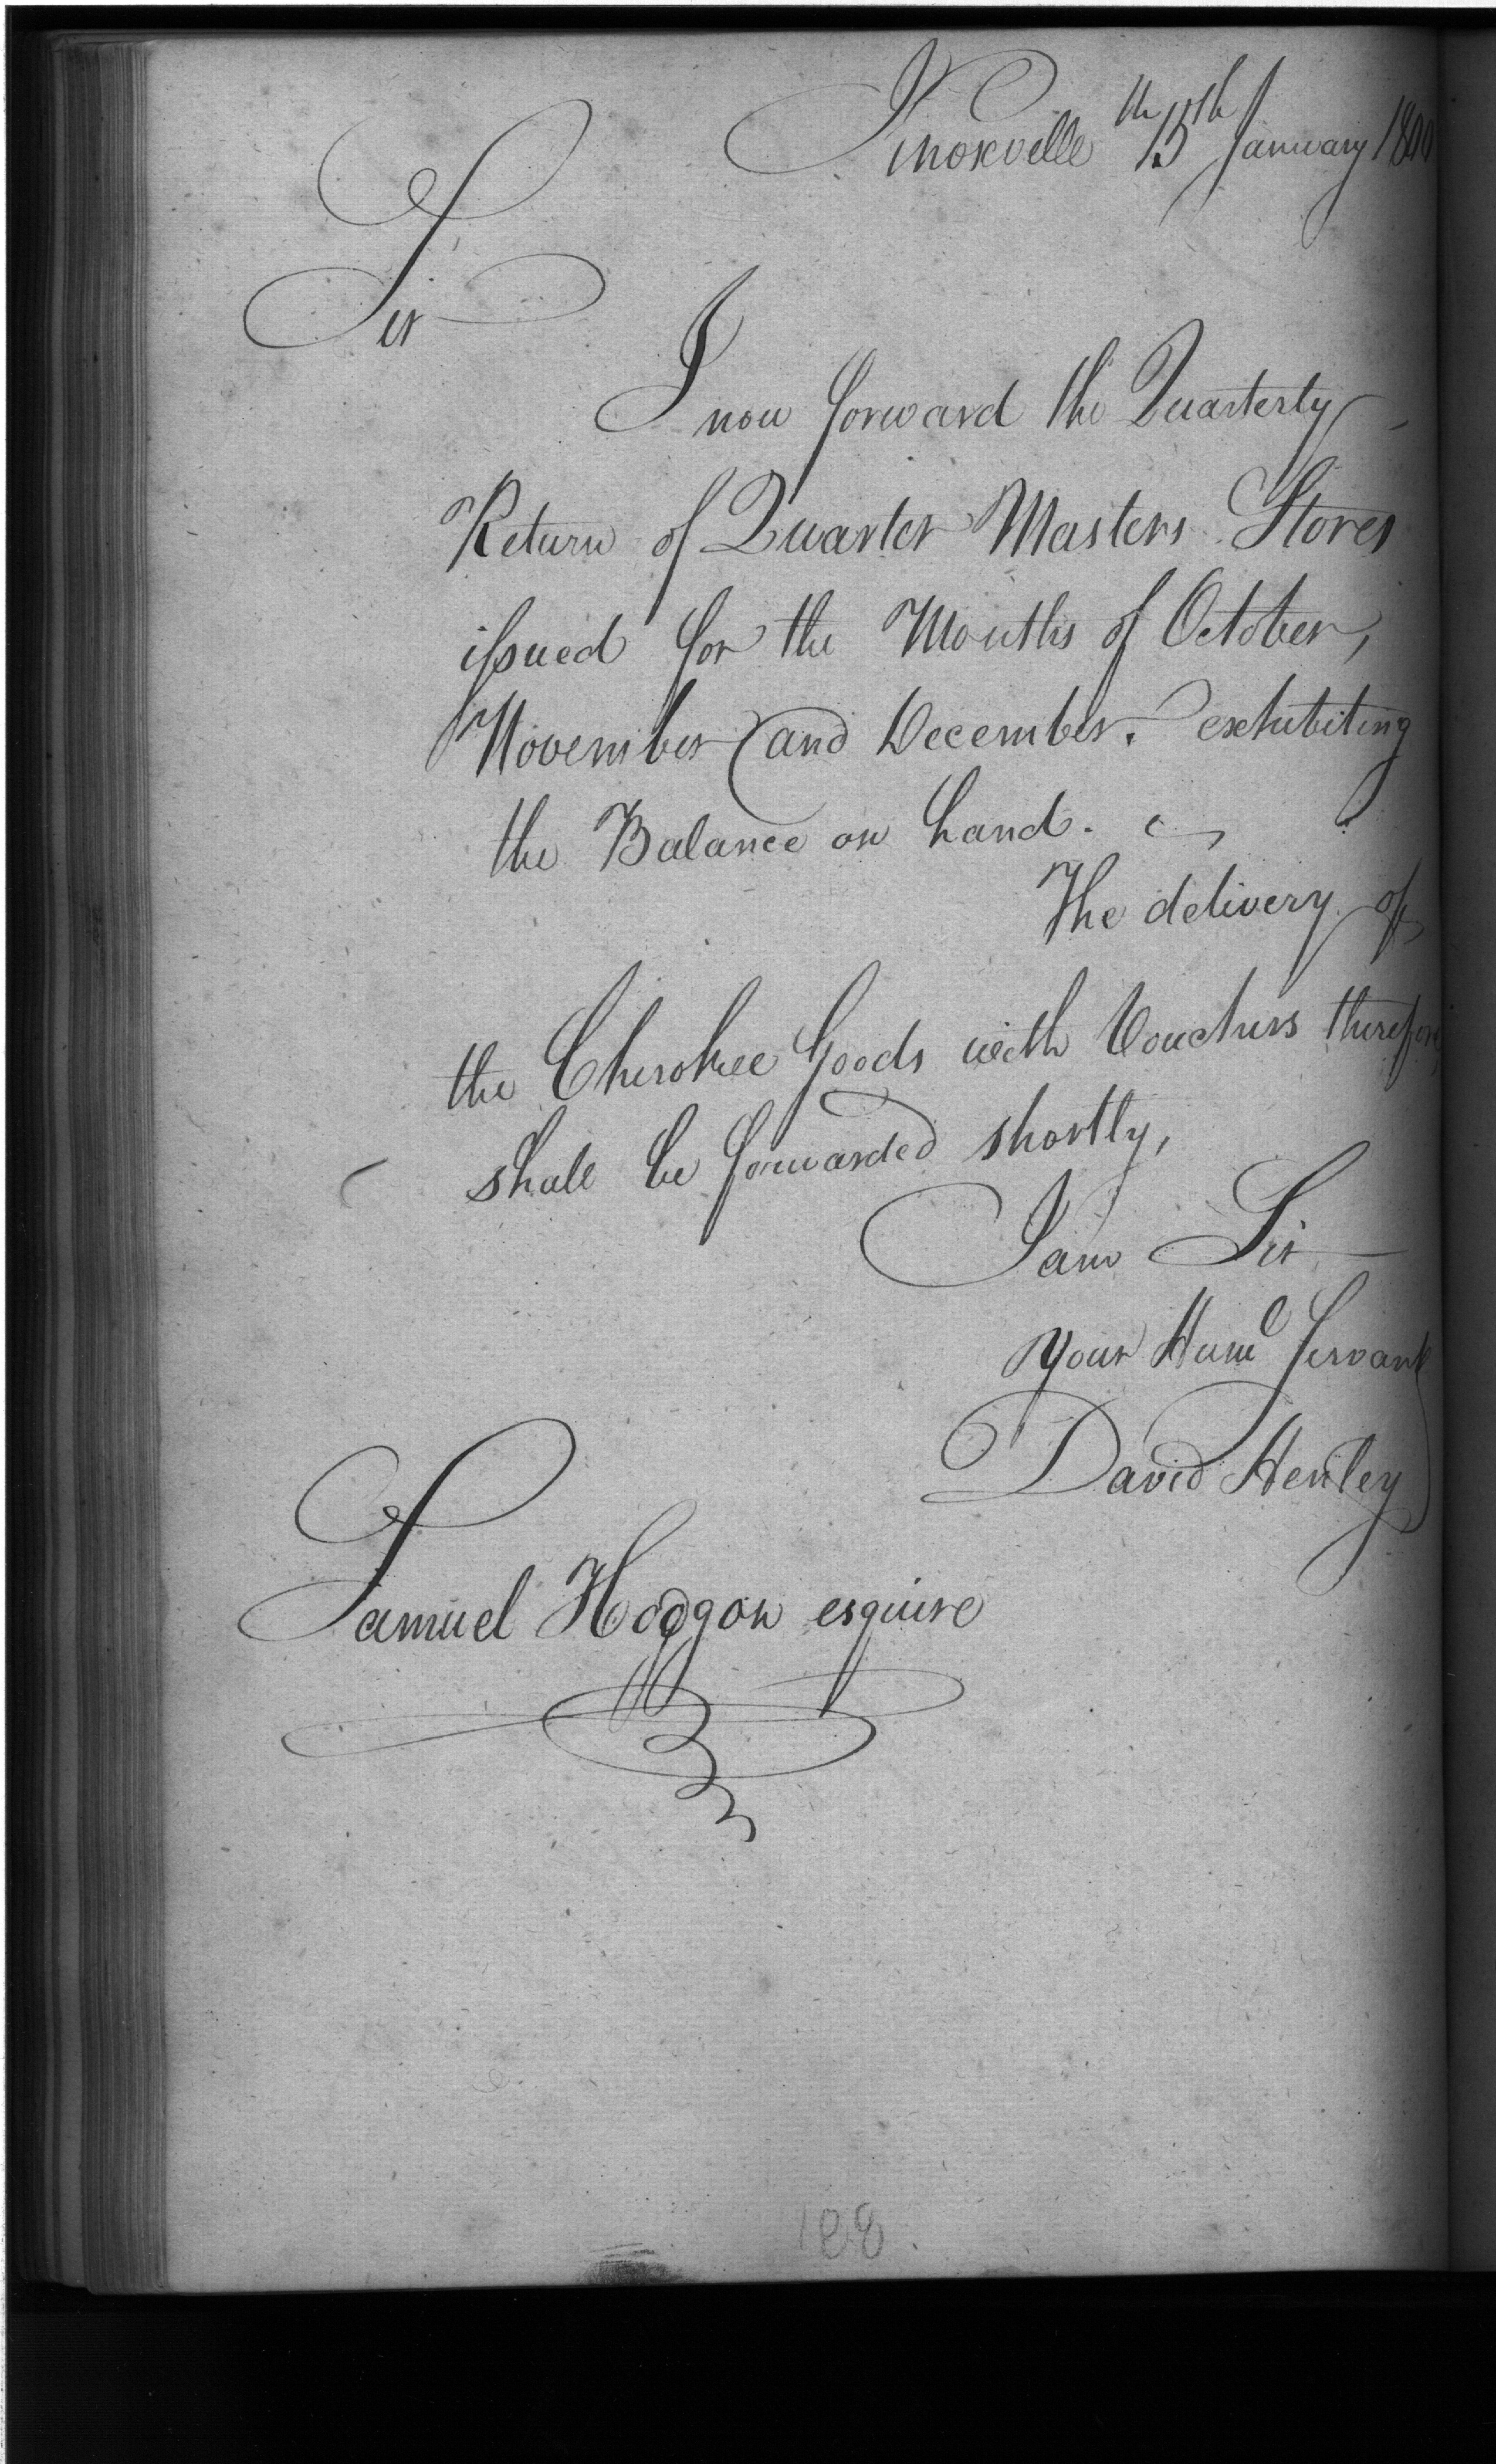 Knoxville the 15th January 1800
Sir
I now forward the Quarterly
Return of Quarter Masters Stores
issued for the Months of October,
November and December. exhibiting
the Balance on hand.
The delivery of
the Cherokee Goods with Vouchers therefore
shall be forwarded shortly,
I am Sir
Your Hume Servant
David Henley
Samuel Hodgon esquire
188